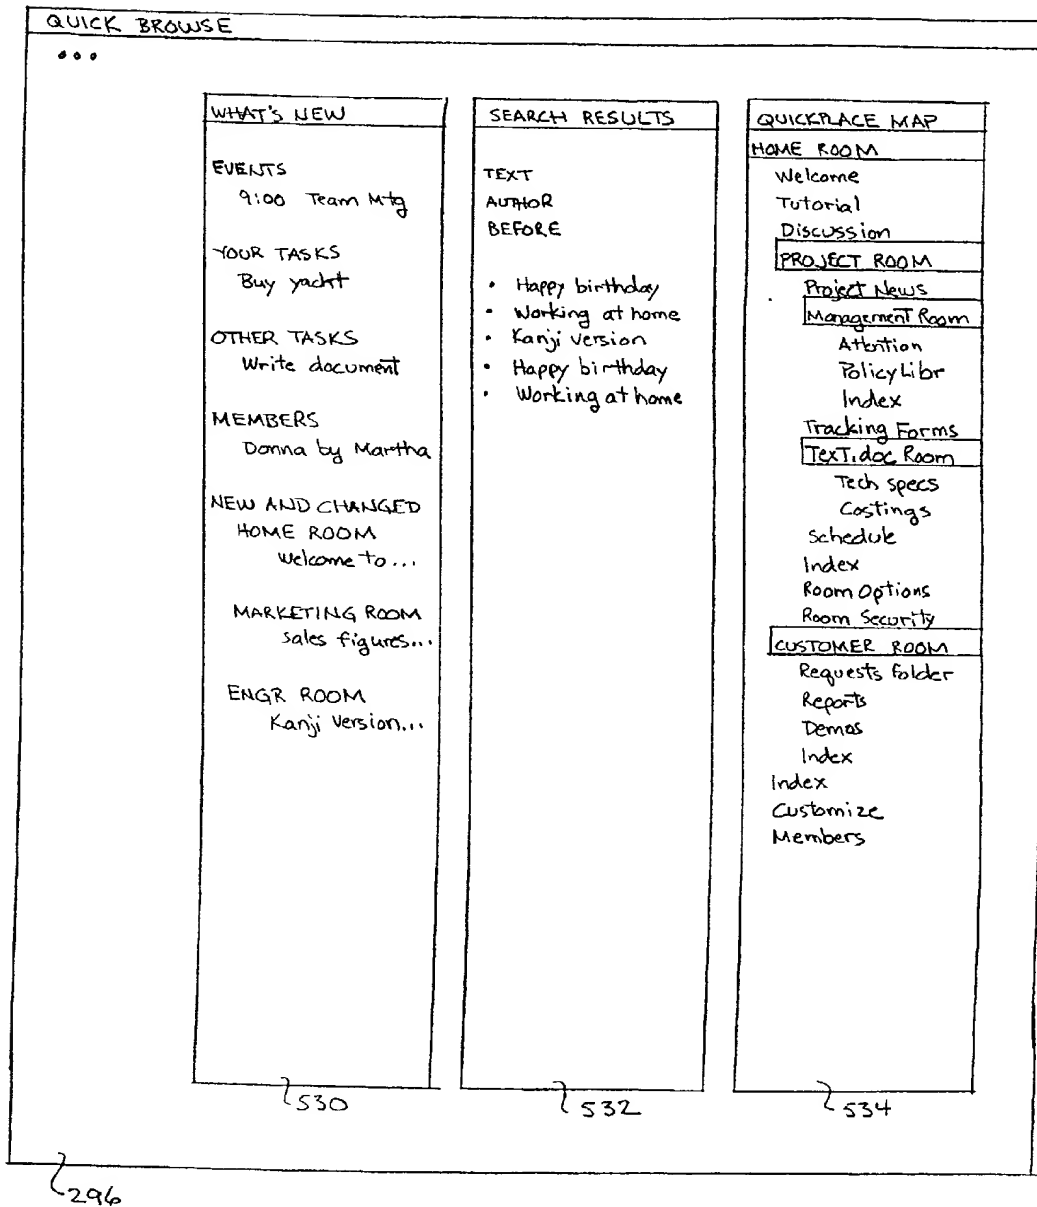 QUICK BROWSE
...
WHAT'S NEW
EVENTS
9:00 Team Mtg
YOUR TASKS
Buy yacht
OTHER TASKS
Write document
MEMBERS
Donna by Martha
NEW AND CHANGED
HOME ROOM
Welcome to...
MARKETING ROOM
Sales figures...
ENGR ROOM
Kanji Version...
530
SEARCH RESULTS
TEXT
AUTHOR
BEFORE
• Happy birthday
• Working at home
• Kanji version
• Happy birthday
• Working at home
532
QUICKPLACE MAP
HOME ROOM
Welcome
Tutorial
Discussion
PROJECT ROOM
Project News
Management Room
Attention
Policy Libr
Index
Tracking Forms
TexT.doc Room
Tech specs
Costings
Schedule
Index
Room Options
Room Security
CUSTOMER ROOM
Requests folder
Reports
Demos
Index
Index
Customize
Members
534
296